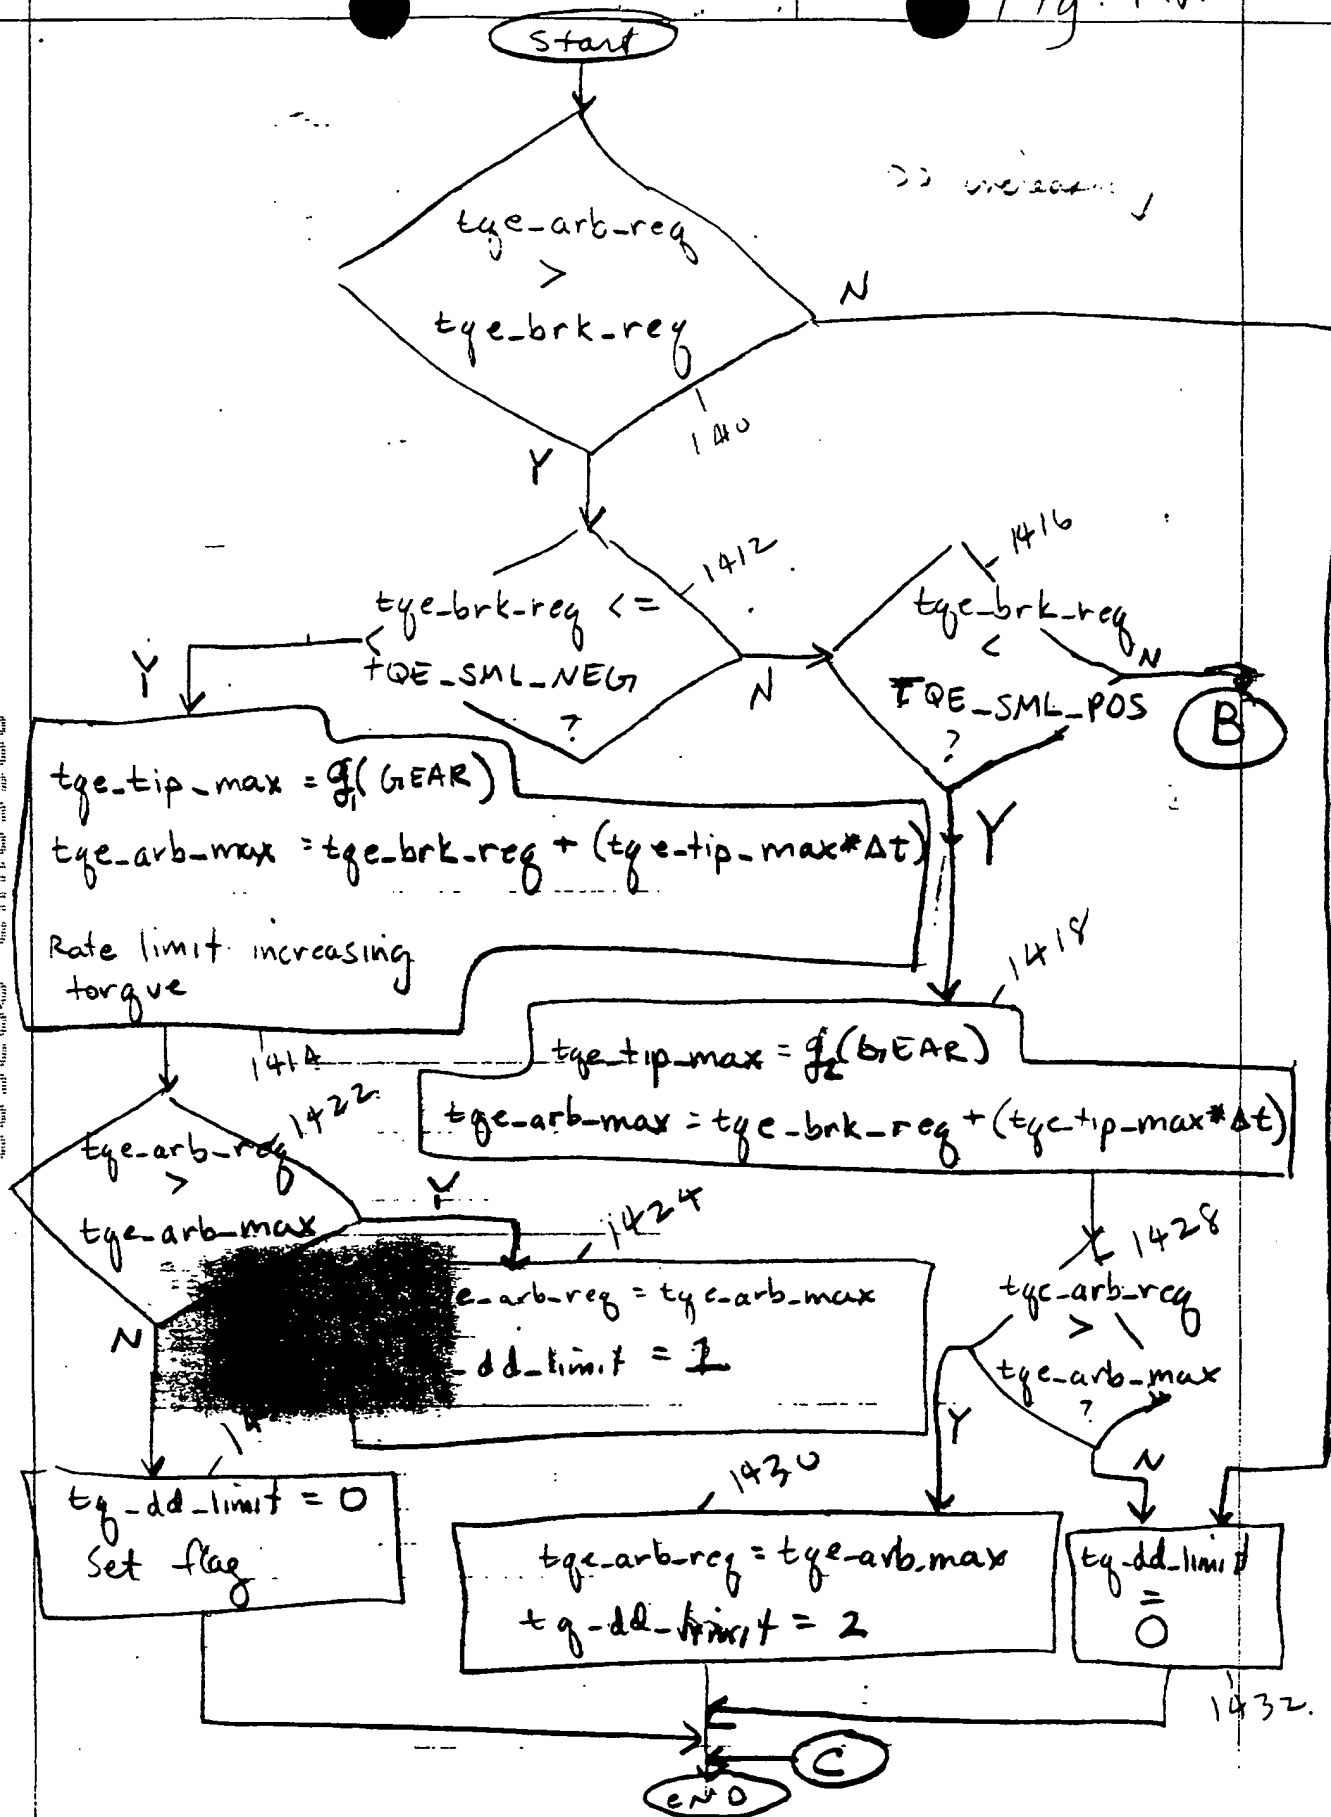 Fig.
Start
tqe_arb_req
>
tqe_brk_req
N
1410
Y
1412
1416
tqe_brk_req <=
TQE_SML_NEG
?
Y
N
tqe_brk_req
<
TQE_SML_POS
?
N
B
Y
tqe_tip_max = g1(GEAR)
tqe_arb_max = tqe_brk_req + (tqe_tip_max*Δt)
Rate limit increasing
torque
1414
1418
tqe_tip_max = g2(GEAR)
tqe_arb_max = tqe_brk_req + (tqe_tip_max*Δt)
1422
tqe_arb_req
>
tqe_arb_max
Y
N
1424
e_arb_req = tqe_arb_max
_dd_limit = 1
1428
tqe_arb_req
>
tqe_arb_max
?
Y
N
tq_dd_limit = 0
Set flag
1430
tqe_arb_req = tqe_arb_max
tq_dd_limit = 2
tq_dd_limit
=
0
1432
C
END